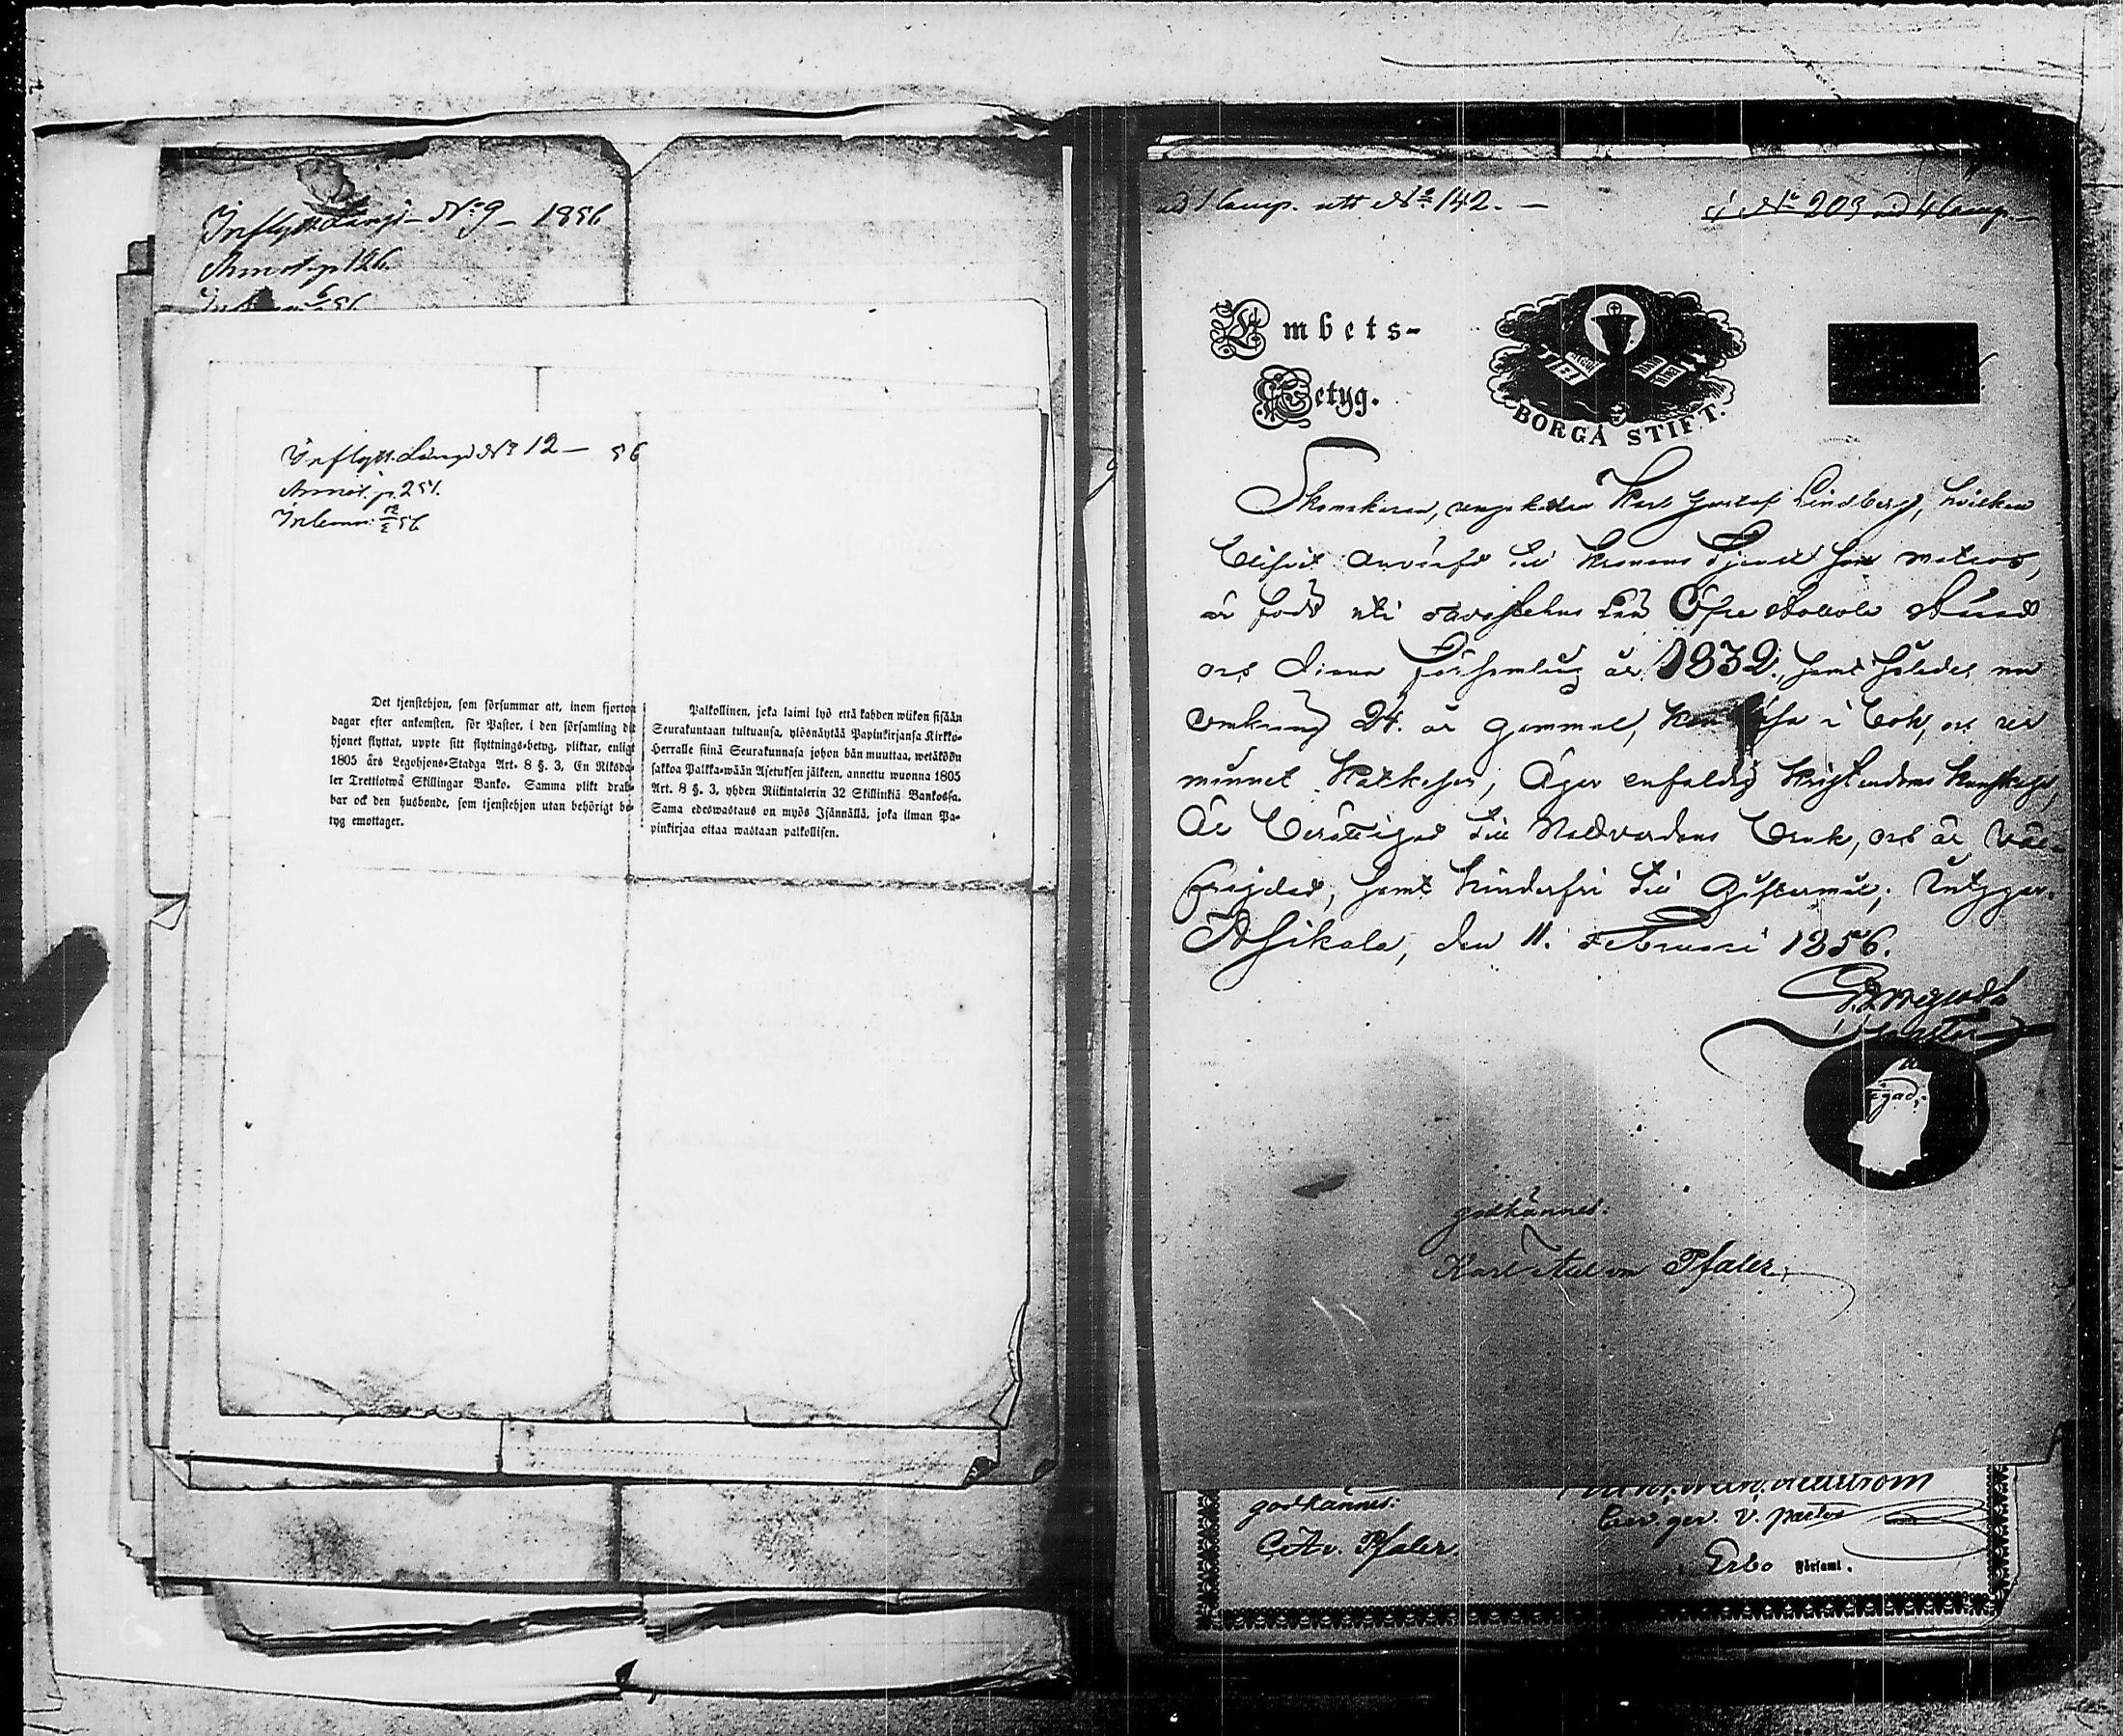 Inflyttlängd No 9 – 1856
Annot. p 126.
Inflytt. Längd No 12 – 56
Annot. p. 251.
Inlemn. 12/2 56
Det tjenstehjon, som försummar att, inom fjorton
dagar efter ankomsten, för Pastor, i den församling dit
hjonet flyttat, uppte sitt flyttnings-betyg, pliktar, enligt
1805 års Legohjons-Stadga Art. 8 §. 3, En Riksda-
ler Trettiotwå Skillingar Banko. Samma plikt drab-
bar ock den husbonde, som tjenstehjon utan behörigt be-
tyg emottager.
Palkollinen, joka laimi lyö että kahden wiikon sisään
Seurakuntaan tultuansa, ylösnäytää Papinkirjansa Kirkko-
Herralle siinä Seurakunnasa johon hän muuttaa, wetäköön
sakkoa Palkka-wään Asetuksen jälkeen, annettu wuonna 1805
Art. 8 §. 3, yhden Riikintalerin 32 Skillinkiä Bankossa.
Sama edeswastaus on myös Isännällä, joka ilman Pa-
pinkirjaa ottaa wastaan palkollisen.
ad 1 Camp. utt No 142. –
No 203 ad 4 Camp. –
Embets-
Betyg.
BORGÅ STIFT.
Skomakaren, ungkarlen Karl Gustaf Lindberg, hvilken
blifvit anvärfd till Kronans tjenst som matros,
är född uti Tavastehus Län Öfre Hollola Härad
och denna Församling år 1832, samt således nu
omkring 24 år gammal, kan läsa i bok, och ur
minnet Katkesen, Äger enfaldig kristendoms kunskap,
Är berättigad till Nattvardens bruk, och är väl-
frejdad, samt hinderfri till Giftermål; intygar.
Asikkala, den 11. Februari 1856.
Pastor
godkännes:
Karl Axel von Pfaler.
godkännes:
C A v. Pfaler.
v. pastor
Erbo Församl.